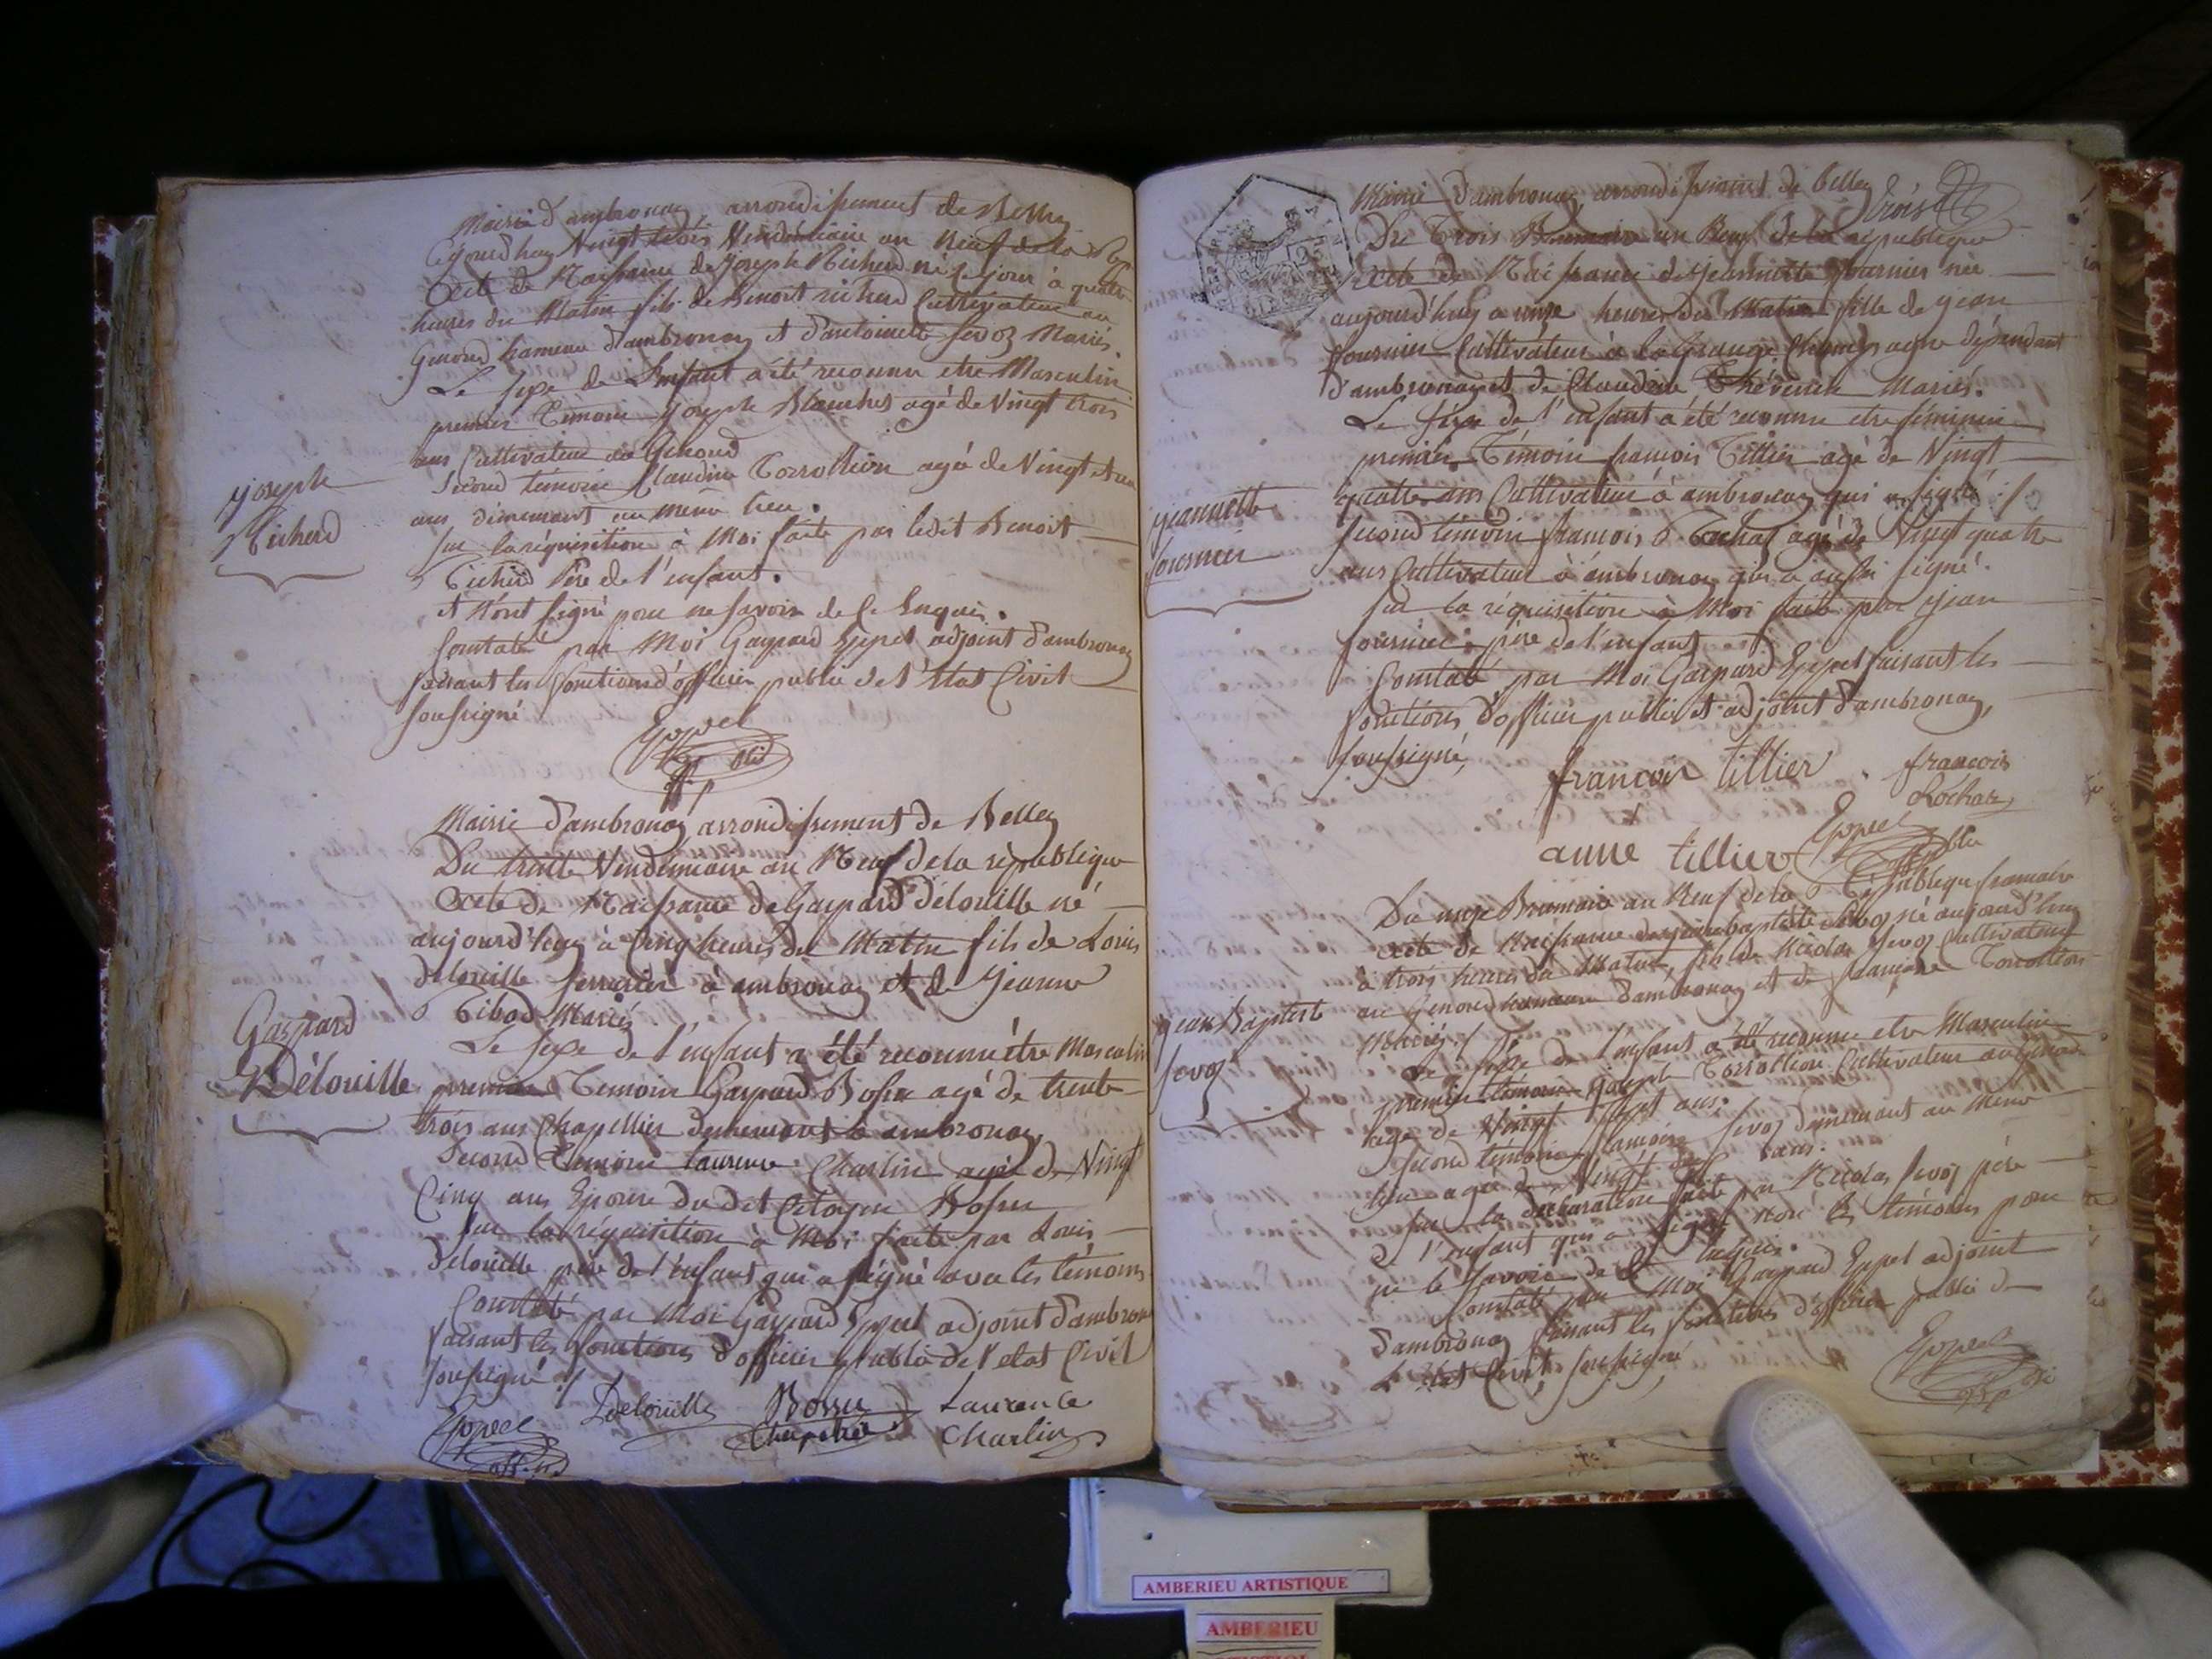 Mairie d'ambronay, arrondissement de Belley
Cejourd'huy Vingt trois Vendémiaire an Neuf de la Rep
Acte de Naissance de Joseph Richerd né le jour à quatre
heures du Matin fils de Benoit richerd Cultivateur au
Genoud hameau d'ambronay et d'antoinette Sevoz Mariés.
Le sexe de l'enfant a été reconnu etre Masculin
premier Témoin joseph Blanchet agé de Vingt trois
ans Cultivateur au Genoud
Second témoin Claudine agé de Vingt
ans demeurant au même lieu.
Sur la réquisition à Moi faite par ledit Benoit
Richerd Père de l'enfant.
et N'ont signé pour ne savoir de ce Enquis.
Constaté par Moi Gaspard Eppel adjoint d'ambronay
faisant les fonctions d'officier public de l'état Civil
soussigné
Eppel
joseph
Richerd
Mairie d'ambronay arrondissement de Belley
Du trente Vendemiaire an Neuf de la république
Acte de Naissance de Gaspard Délouille né
aujourd'huy à Cinq heures du Matin fils de Louis
delouille Serrurier à ambronay et de Jeanne
Tibod Mariés
Le sexe de l'enfant a été reconnu être Masculin
premier Temoin Gaspard Bossu agé de trente
trois ans Chapellier demeurant à ambronay
Second Temoin Laurence Charlin agée de Vingt
Cinq ans Epouse du dit Citoyen Bossu
Sur la réquisition à Moi faite par Louis
delouille père de l'enfant qui a signé avec les témoins
Constaté par Moi Gaspard Eppel adjoint d'ambronay
faisant les fonctions d'officier public de l'etat Civil
soussigné ./.
Gaspard
Délouille
Eppel Delouille Bossu Laurence
Chapelier Charlin
Mairie d'ambronay arrondissement de belley
Du Trois Brumaire an Neuf de la république
acte de Naissance de jeannette fournier née
aujourd'huy a onze heures du Matin fille de jean
fournier Cultivateur à la Grange Champagne dépendant
d'ambronay et de Claudine Thévenin Mariés.
Le sexe de l'enfant a été reconnu etre féminin
premier Témoin francois Tillier agé de Vingt
quatre ans Cultivateur à ambronay qui a signé ./.
second témoin francois Rochas agé de Vingt quatre
ans Cultivateur à ambronay qui a aussi signé.
sur la réquisition à Moi faite par jean
fournier père de l'enfant
Constaté par Moi Gaspard Eppel faisant les
fonctions d'officier public et adjoint d'ambronay,
soussigné,
jeannette
fournier
francois tillier francois
Rochas
anne tillier Eppel
Du onze Brumaire an Neuf de la République francaise
acte de Naissance de jeanbaptiste Sevoz né aujourd'huy
à trois heures du Matin, fils de Nicolas Sevoz Cultivateur
au Genoud hameau d'ambronay et de
Mariés ./.
Le sexe de l'enfant a été reconnu etre Masculin
premier témoin joseph Cultivateur au Genoud
agé de Vingt sept ans.
second témoin Sevoz demeurant au Même
lieu agée de Vingt ans.
Sur la déclaration faite par Nicolas Sevoz père
de l'enfant qui a signé non les témoins pour
ne le savoir de ce enquis.
Constaté par Moi Gaspard Eppel adjoint
d'ambronay faisant les fonctions d'officier public de
L'état Civil, soussigné
jean Baptiste
Sevoz
Eppel
AMBERIEU ARTISTIQUE
AMBERIEU